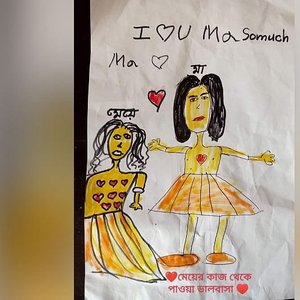 I ♡ U Ma Somuch
Ma ♡
মা
মেয়ে
❤️মেয়ের কাজ থেকে
পাওয়া ভালবাসা ❤️